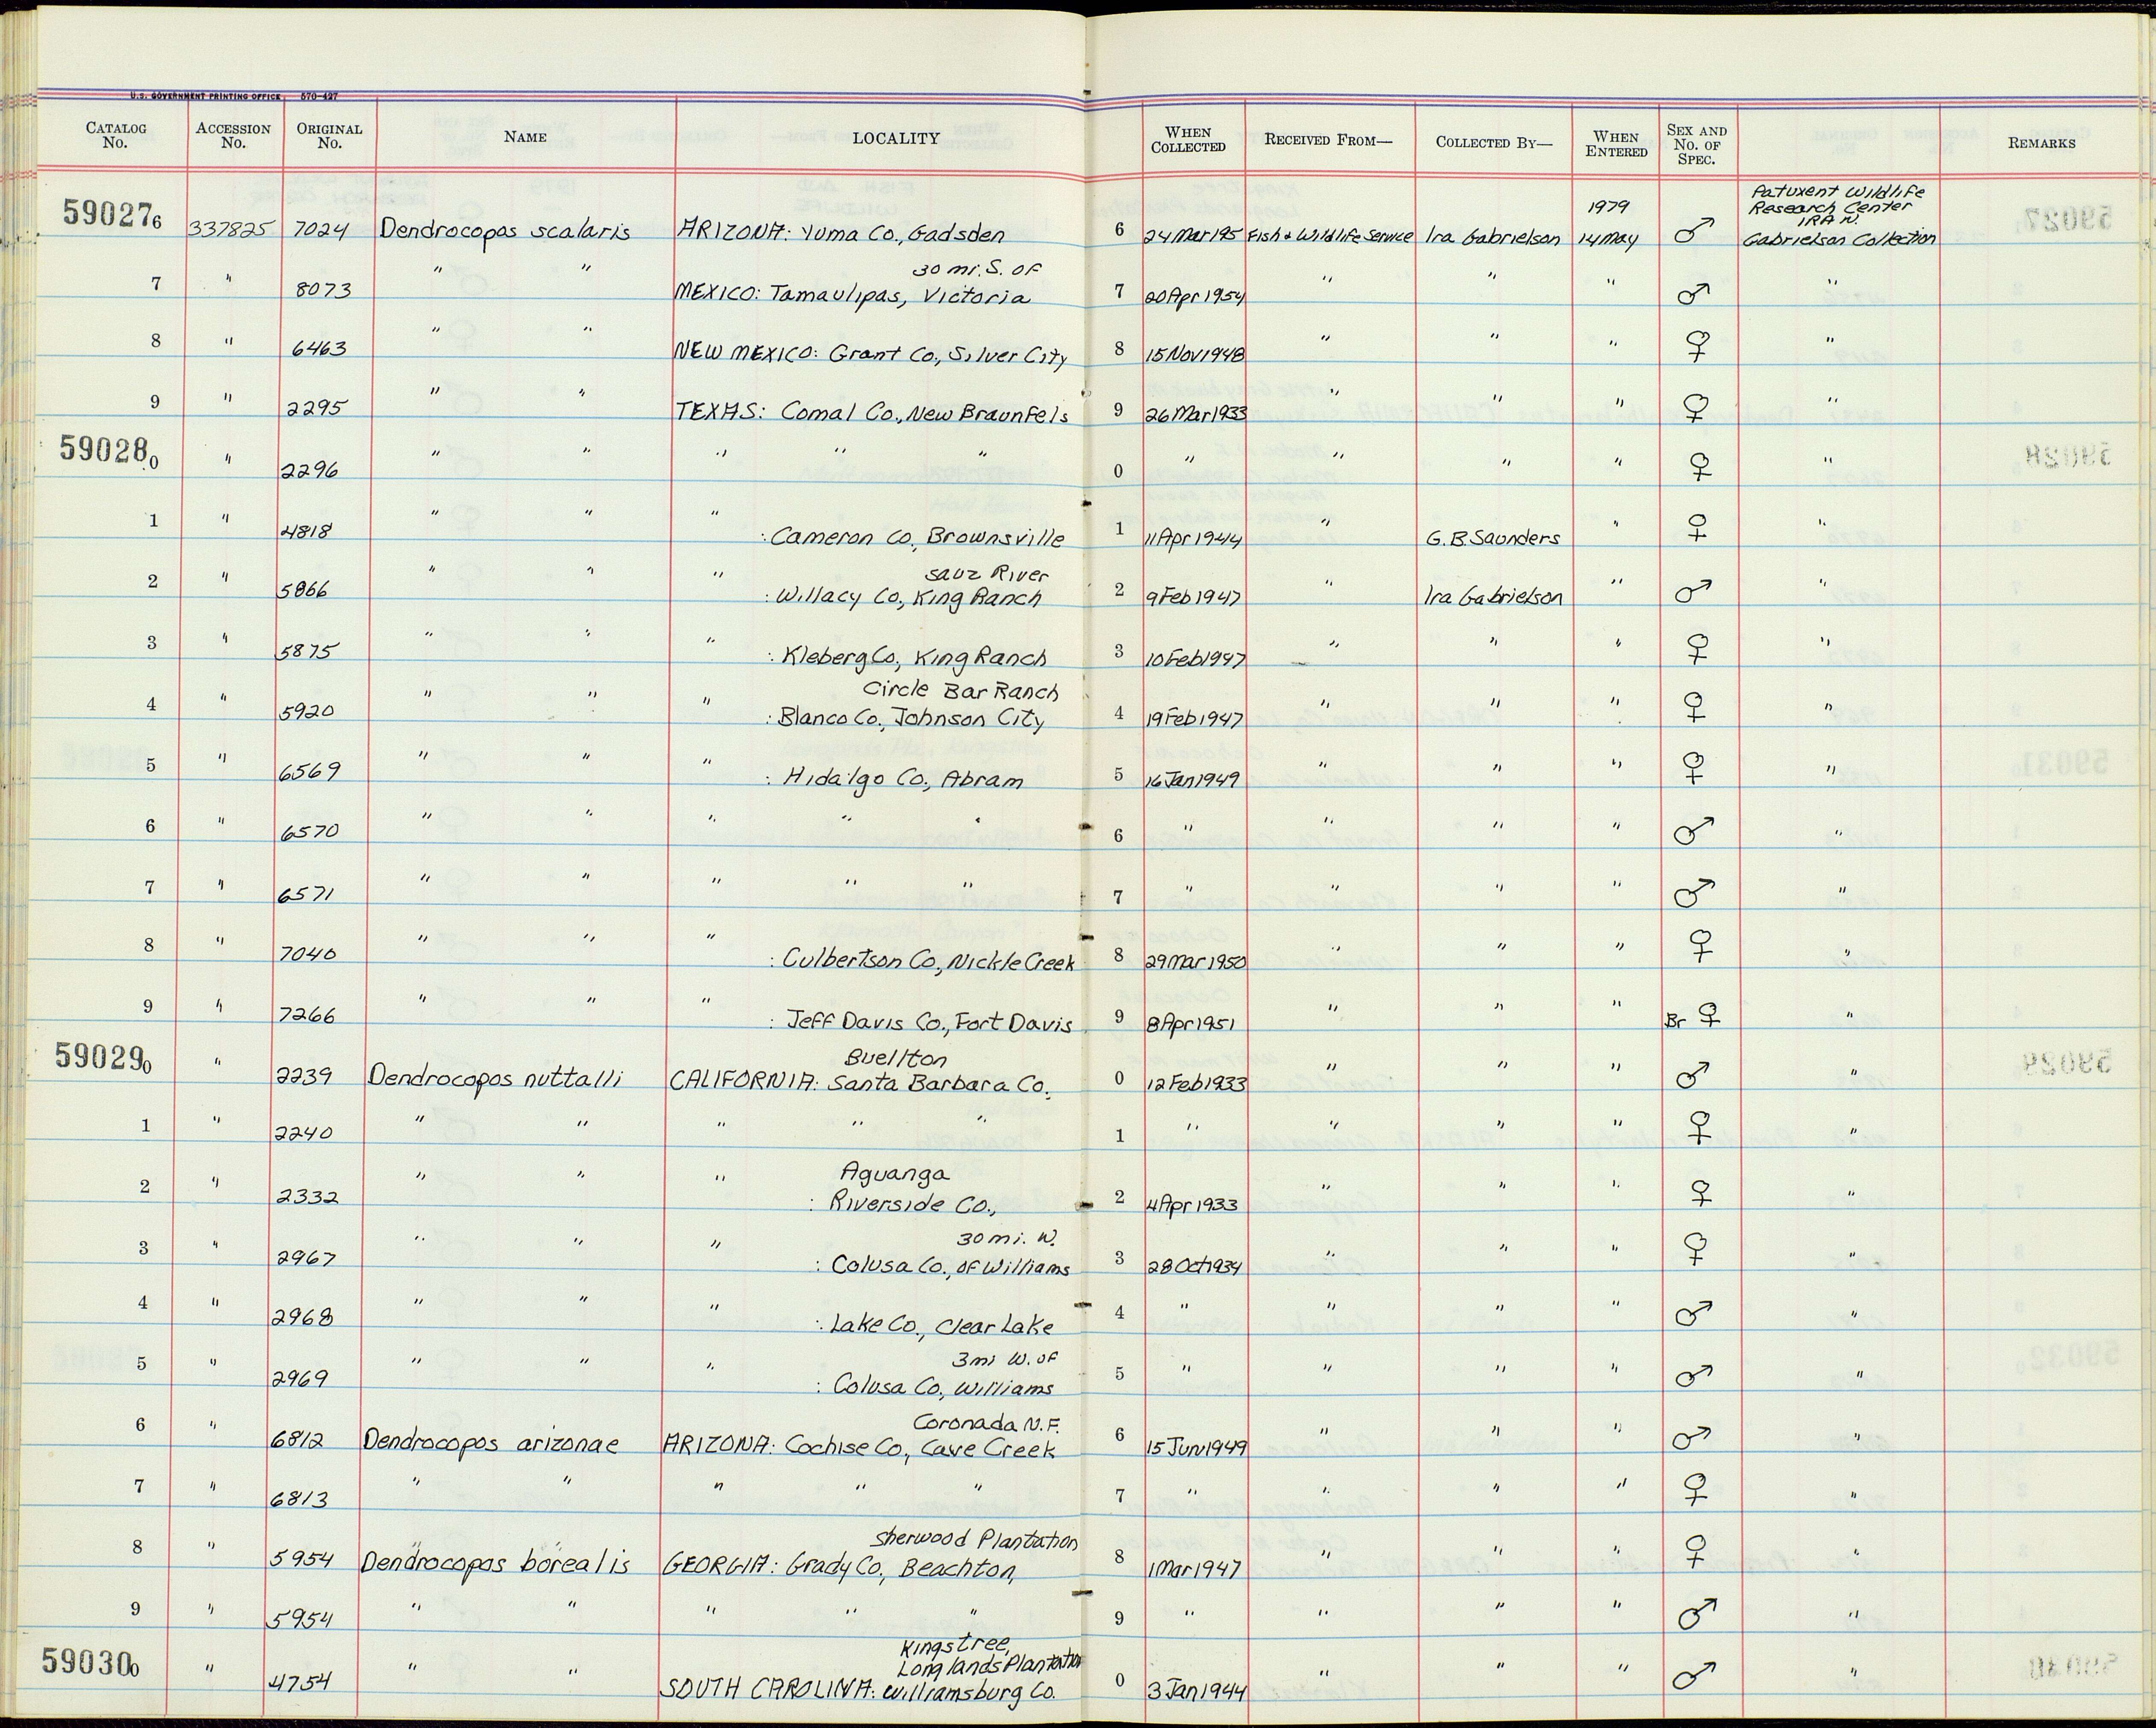 U.S. GOVERNMENT PRINTING OFFICE 570-427
CATALOG No. ACCESSION No. ORIGINAL No. NAME LOCALITY WHEN COLLECTED RECEIVED FROM— COLLECTED BY— WHEN ENTERED SEX AND No. OF SPEC. REMARKS
Patuxent Wildlife
1979 Research Center
IRA N.
590276 337825 7024 Dendrocopos scalaris ARIZONA: Yuma Co., Gadsden 6 24Mar195 Fish & Wildlife Service Ira Gabrielson 14May ♂ Gabrielson Collection
30 mi. S. of
7 " 8073 " " MEXICO: Tamaulipas, Victoria 7 20Apr1954 " " " ♂ "
8 " 6463 " " NEW MEXICO: Grant Co., Silver City 8 15Nov1948 " " " ♀ "
9 " 2295 " " TEXAS: Comal Co., New Braunfels 9 26Mar1933 " " " ♀ "
590280 " 2296 " " " " " 0 " " " " ♀ "
1 " 4818 " " " : Cameron Co., Brownsville 1 11Apr1944 " G.B. Saunders " ♀ "
Sauz River
2 " 5866 " " " : Willacy Co., King Ranch 2 9Feb1947 " Ira Gabrielson " ♂ "
3 " 5875 " " " : Kleberg Co., King Ranch 3 10Feb1947 " " " ♀ "
Circle Bar Ranch
4 " 5920 " " " : Blanco Co., Johnson City 4 19Feb1947 " " " ♀ "
5 " 6569 " " " : Hidalgo Co., Abram 5 16Jan1949 " " " ♀ "
6 " 6570 " " " " " 6 " " " " ♂ "
7 " 6571 " " " " " 7 " " " " ♂ "
8 " 7040 " " " : Culbertson Co., Nickle Creek 8 29Mar1950 " " " ♀ "
9 " 7266 " " " : Jeff Davis Co., Fort Davis 9 8Apr1951 " " " Br ♀ "
Buellton
590290 " 2239 Dendrocopos nuttalli CALIFORNIA: Santa Barbara Co. 0 12Feb1933 " " " ♂ "
1 " 2240 " " " " " 1 " " " " ♀ "
Aguanga
2 " 2332 " " " : Riverside Co., 2 4Apr1933 " " " ♀ "
30 mi. W.
3 " 2967 " " " : Colusa Co., of Williams 3 28Oct1934 " " " ♀ "
4 " 2968 " " " : Lake Co., Clear Lake 4 " " " " ♂ "
3mi W. of
5 " 2969 " " " : Colusa Co, Williams 5 " " " " ♂ "
Coronada N.F.
6 " 6812 Dendrocopos arizonae ARIZONA: Cochise Co., Cave Creek 6 15Jun1949 " " " ♂ "
7 " 6813 " " " " " 7 " " " " ♀ "
Sherwood Plantation
8 " 5954 Dendrocopos borealis GEORGIA: Grady Co., Beachton, 8 1Mar1947 " " " ♀ "
9 " 5954 " " " " " 9 " " " " ♂ "
Kingstree,
Longlands Plantation
590300 " 4754 " " SOUTH CAROLINA: Williamsburg Co. 0 3Jan1944 " " " ♂ "